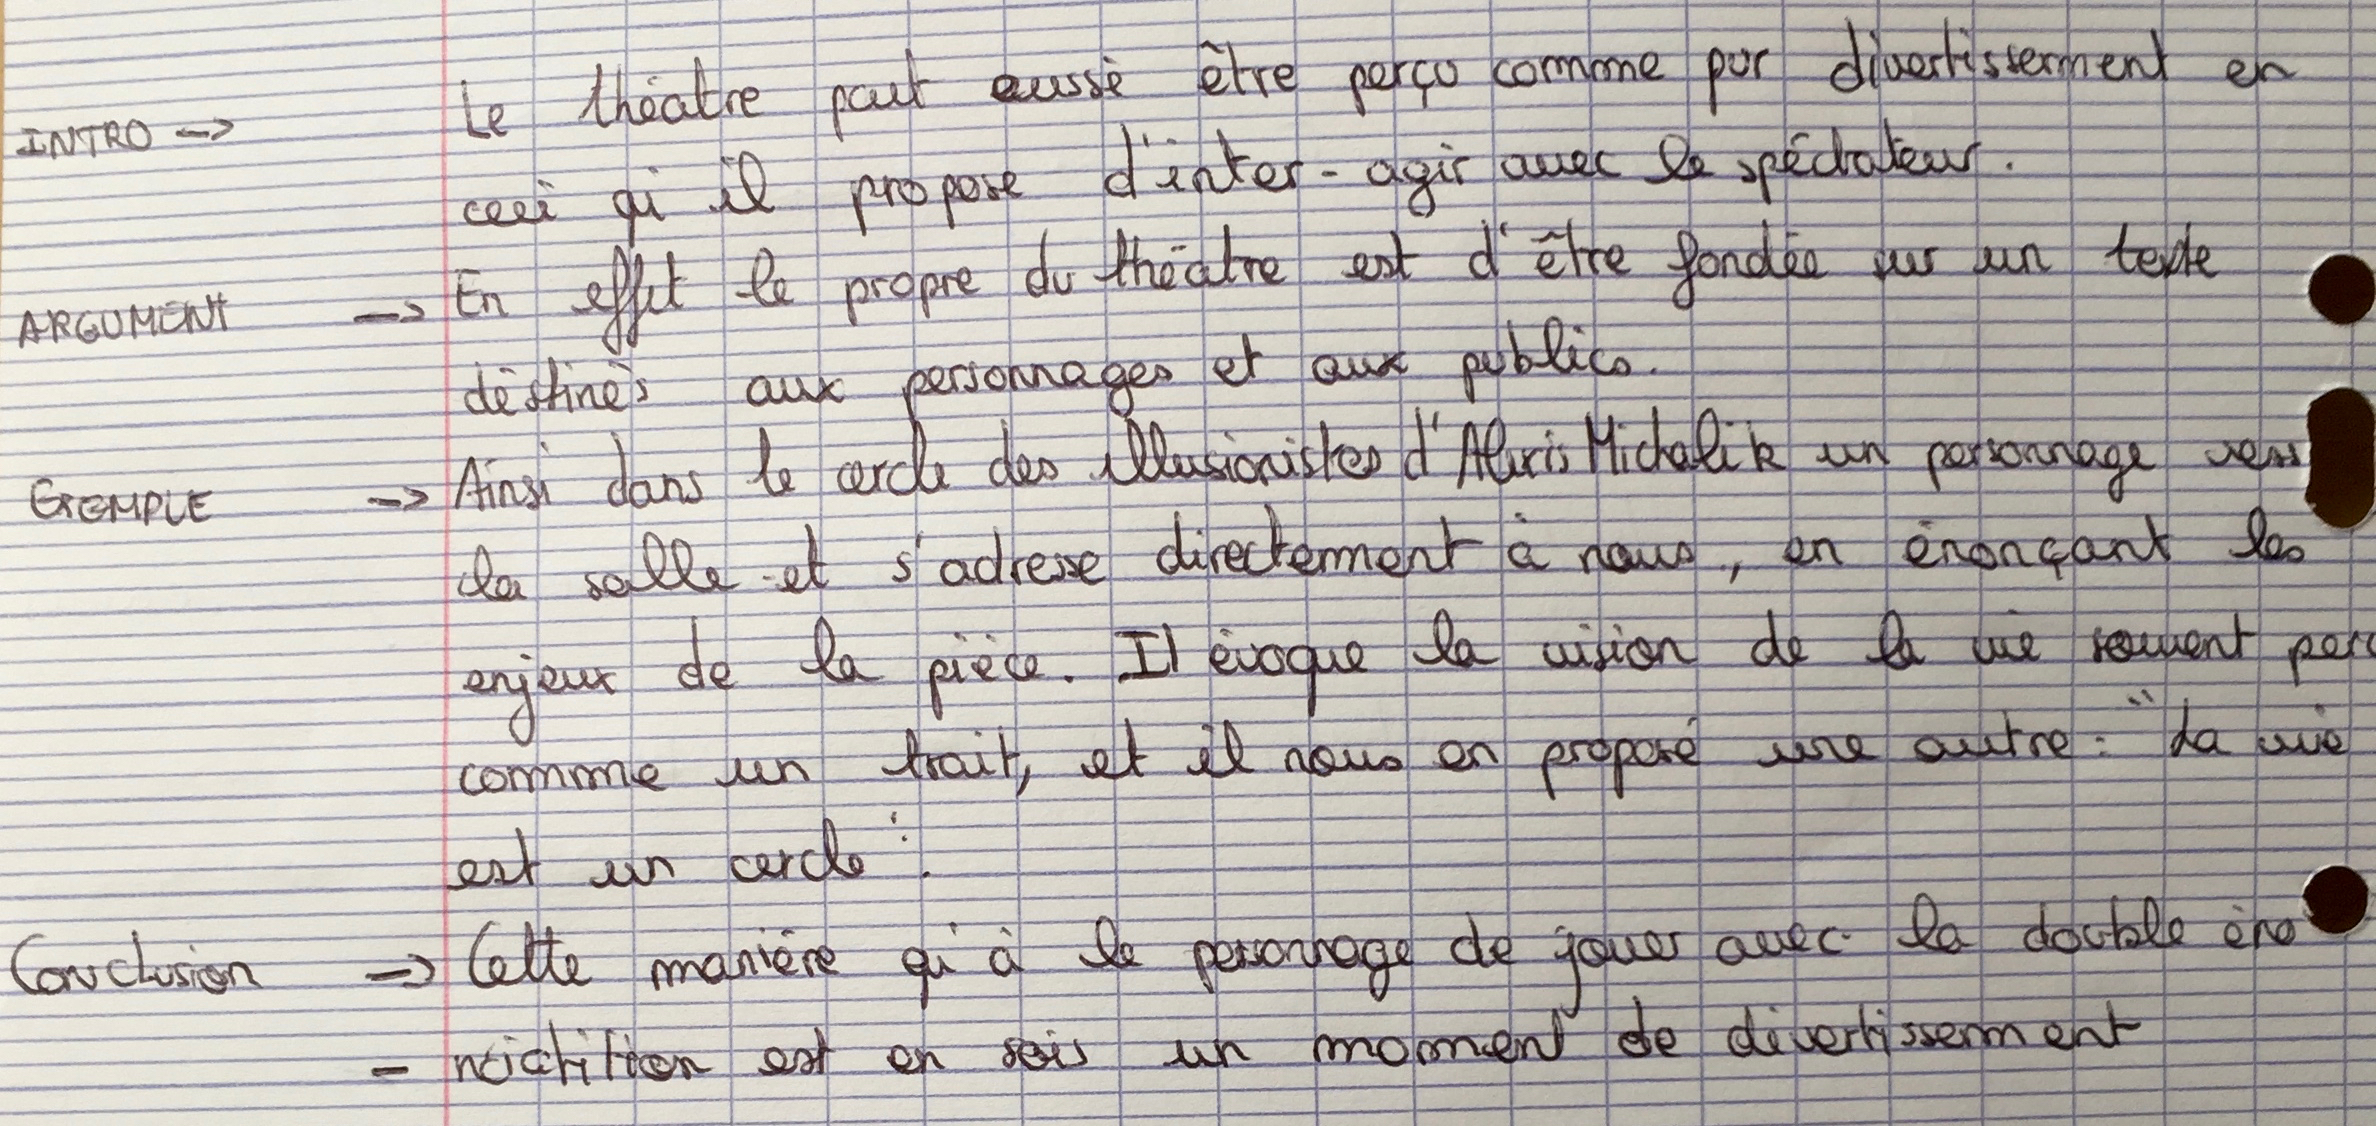 INTRO -> Le théatre peut aussi être perçu comme pur divertissement en
ceci qu'il propose d'inter-agir avec le spéctateur.
ARGUMENT -> En effet le propre du théatre est d'être fondée sur un texte
déstinés aux personnages et aux publics.
EXEMPLE -> Ainsi dans le cercle des illusionistes d'Alexis Michalik un personnage vers
la salle et s'adresse directement à nous, en énonçant les
enjeux de la pièce. Il évoque la vision de la vie souvent perç
comme un trait, et il nous en propose une autre : "La vie
est un cercle".
Conclusion -> Cette manière qu'à le personnage de jouer avec la double éno
- est en sois un moment de divertissement